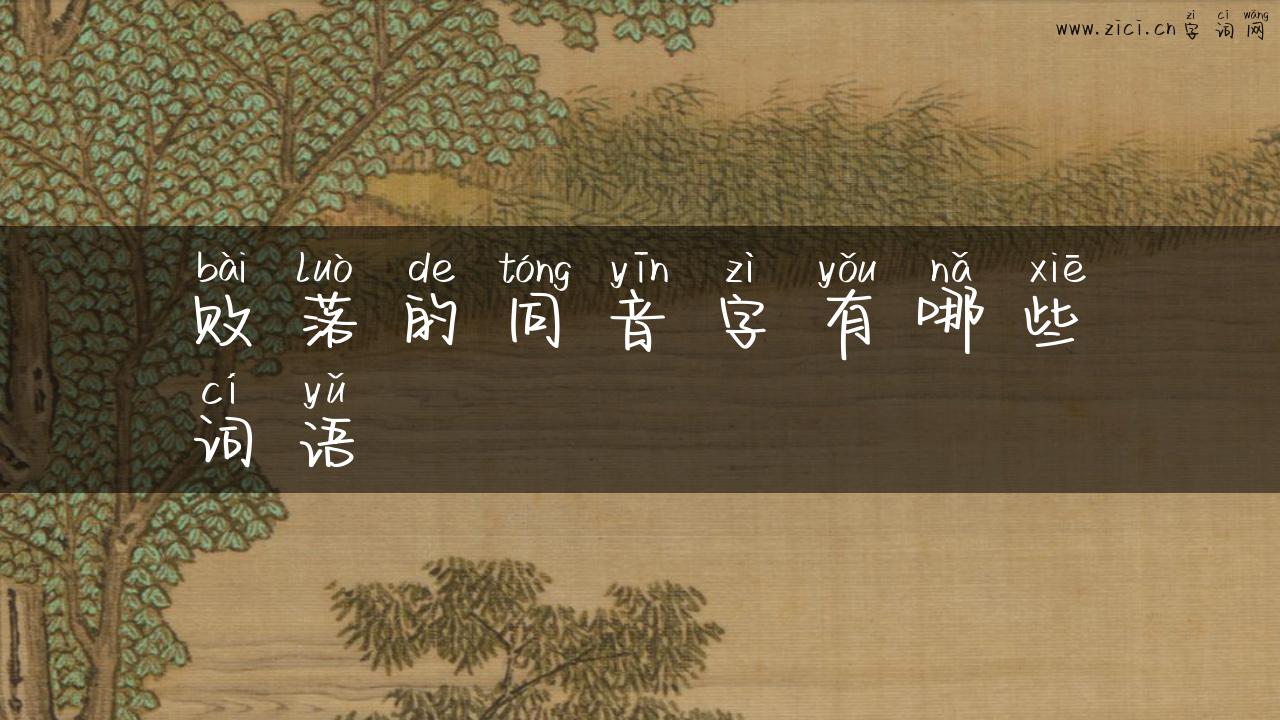 zì cí wǎng
www.zici.cn字词网
bài luò de tóng yīn zì yǒu nǎ xiē
败落的同音字有哪些
cí yǔ
词语